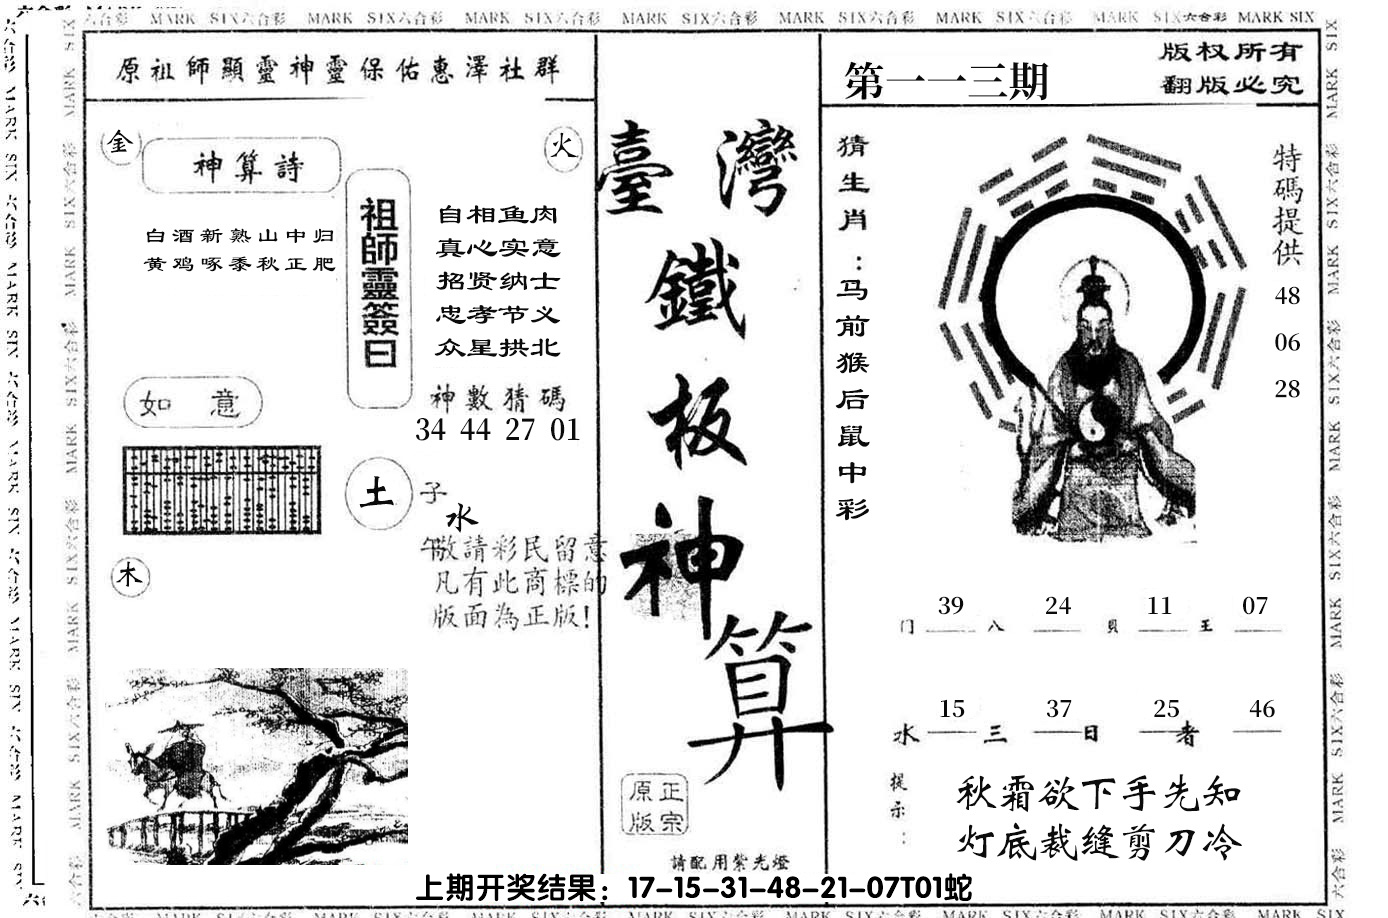 六合彩 MARK SIX六合彩 MARK SIX六合彩 MARK SIX六合彩 MARK SIX六合彩 MARK SIX六合彩 MARK SIX六合彩 MARK SIX六合彩 MARK SIX
原祖師顯靈神靈保佑惠澤社群
金
火
神算詩
白酒新熟山中归
黄鸡啄黍秋正肥
祖師靈簽曰
自相鱼肉
真心实意
招贤纳士
忠孝节义
众星拱北
神數猜碼
34 44 27 01
如意
土
子
水
午
木
敬請彩民留意
凡有此商標的
版面為正版!
臺灣
鐵
板
神
算
原正
版宗
請配用紫光燈
第一一三期
版权所有
翻版必究
猜生肖:马前猴后鼠中彩
特碼提供
48
06
28
39 24 11 07
门 八 貝 王
15 37 25 46
水 三 日 者
提示:
秋霜欲下手先知
灯底裁缝剪刀冷
上期开奖结果：17-15-31-48-21-07T01蛇